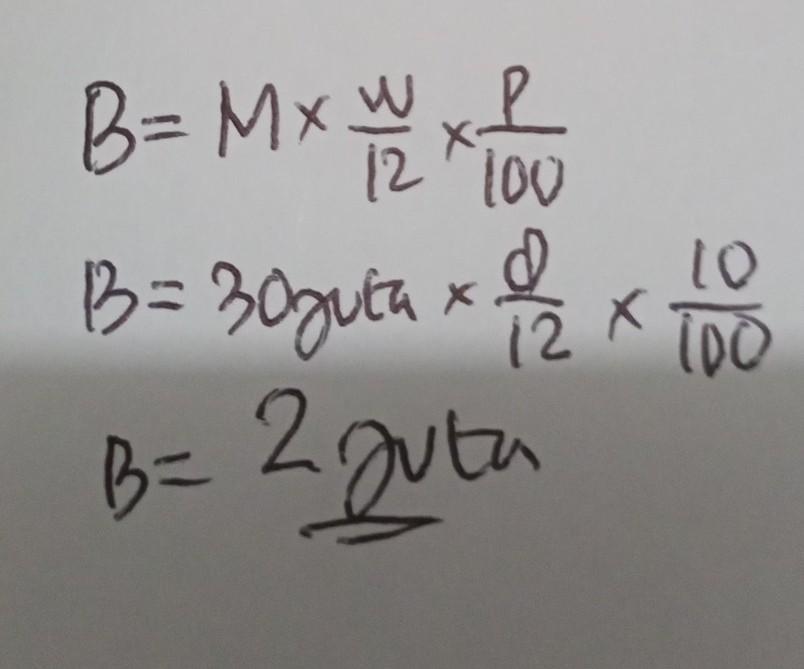 B = M × W/12 × P/100
B = 30 juta × 8/12 × 10/100
B = 2 juta